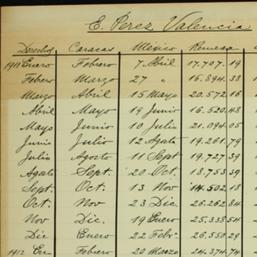 E. Perez Valencia
Directof Caracas Mexico Remesa
1911 Enero Febrero 7 Abril 17.707.19
Febro Marzo 27 " 16.394.33
Marzo Abril 15 Mayo 20.572.16
Abril Mayo 19 Junio 16.520.43
Mayo Junio 10 Julio 21.094.05
Junio Julio 12 Agto 19.261.79
Julio Agosto 11 Sept 19.727.39
Agato Sept. 20 Oct. 13.753.39
Sept. Oct. 13 Nov 14.502.18
Oct. Nov 23 Dic 26.262.34
Nov Dic. 19 Enero 25.335.54
Dic Enero 22 Febr. 26.550.29
1912 En Febrero 20 Marzo 24.374.74